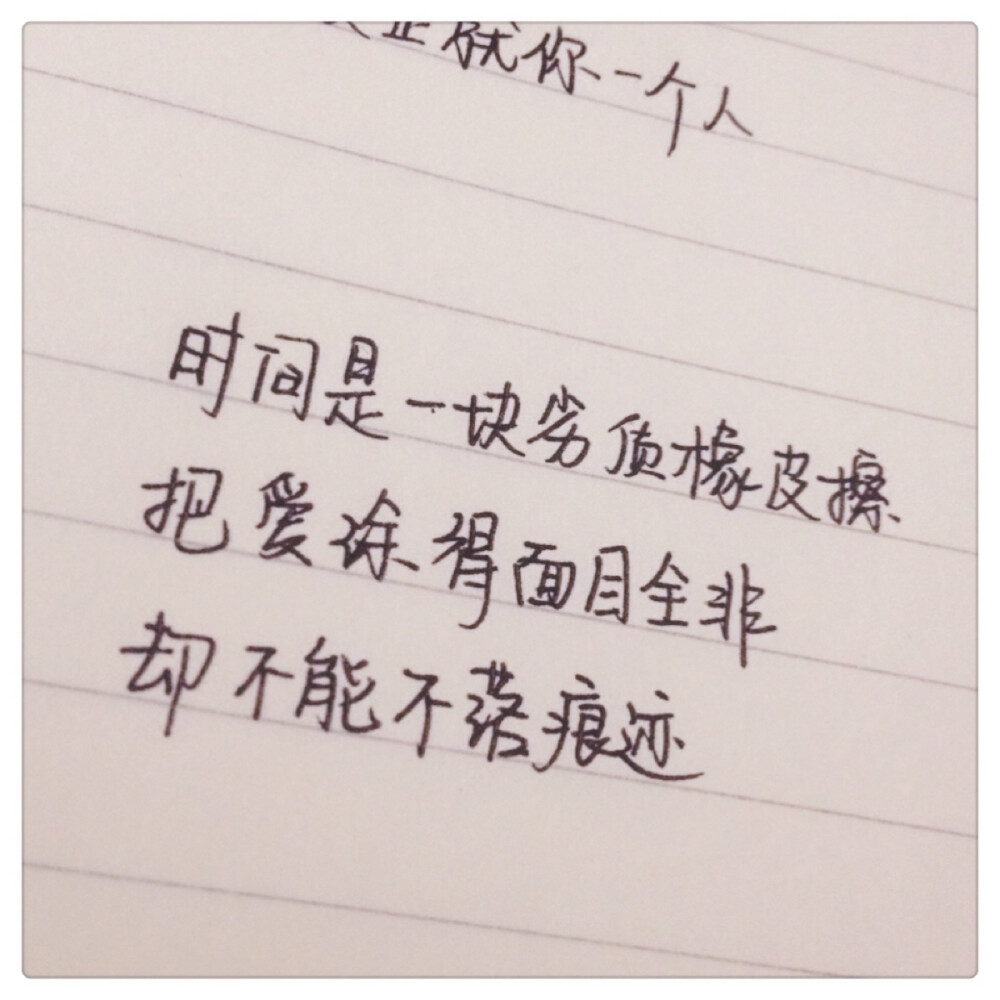 正就你一个人
时间是一块劣质橡皮擦
把爱涂得面目全非
却不能不落痕迹